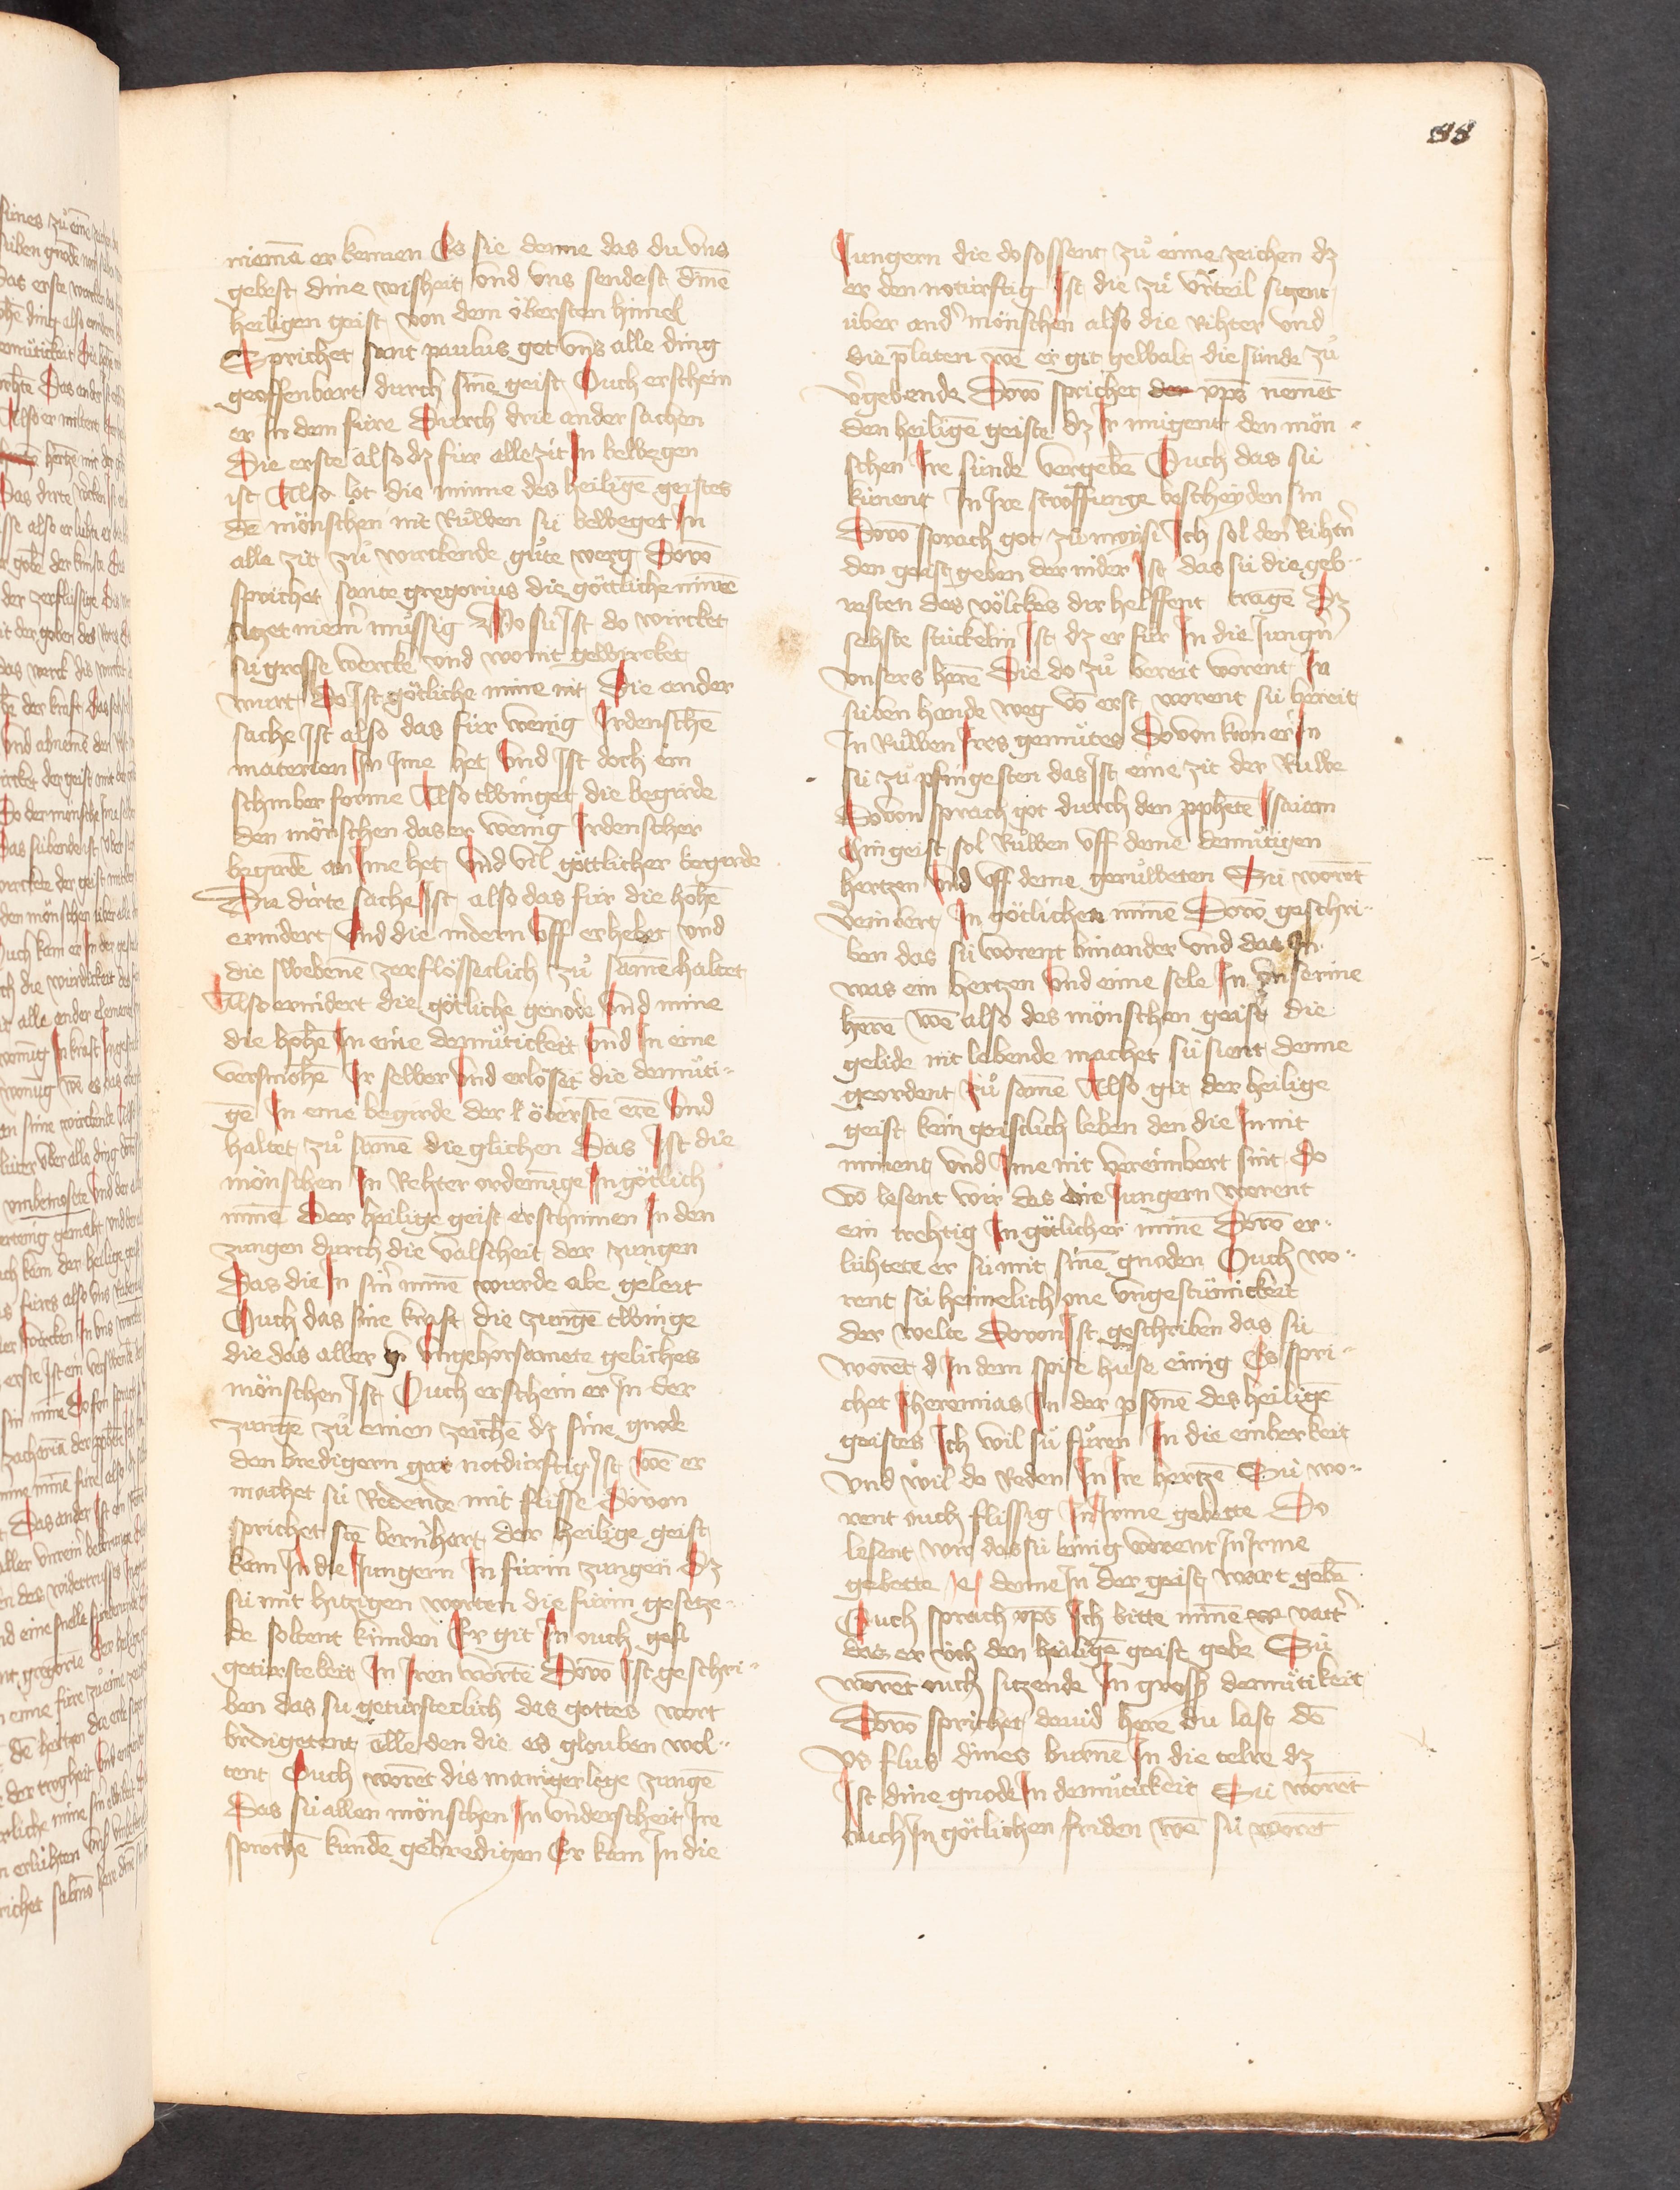 88
niemā er kennen Es sie denne das du vns
gebest dine wisheit vnd vns sendest dinē
heiligen geist von dem öbersten himel
Sprichet sant paulus got vns alle ding
geoffenbart durch sinē geist Ouch erschein
er in dem füre Durch drie ander sachen
Die erste also dz für alle zit In bewegen
ist Also lot die minne des heiligē geistes
dē mönschen nit Růwen sü beweget In
alle zit zů wirckende gůte werg Dovō
sprichet sante gregorius die göttliche minne
sitzet niem̄ müssig Wo sü Ist do wircket
sü grosse wercke vnd womit gewircket
wurt Do Ist götliche mine nit Die ander
sache Ist also das für wenig Irdenschē
materien In Ime het Vnd Ist doch ein
schinber forme Also twinget die begirde
den mönschen das er wenig Irdenscher
begirdē an Ime het Vnd vil göttlicher begirde
Die dirte sache Ist also das für die hohē
ernidert Vnd die nidern Vff erhebet vnd
die swebenē zerflösserlich zů samē haltet
Also ernidert die götliche genode Vnd mine
die hohē In eine demütickeit Vnd In eine
versmohē Ir selber Vnd erlöset die demüti-
gē In eine begirde der öberstē erē Vnd
haltet zů samē die glichen Das Ist die
mönschen In Rehter ordenūge In götlich
minē Der heilige geist erschinen In den
zungen durch die valscheit der zungen
Das die In sin̄ minē wurde abe geleit
Ouch das sine kraft die zungē twinge
die das aller Vngehorsamete geliches
mönschen Ist Ouch erschein er In der
zungē zů einen zeichē dz sine gnode
den bredigern gar notdürftig Ist wē er
machet sü Redende mit flisse Dovon
sprichet stē bernhart der heilige geist
kam In die Jungern In fürin zungen Dz
sü mit hitzigen worten die fürin gesetze-
de soltent künden Er git In ouch
getürstekeit In Iren wortē Dovō Ist geschri-
ben das sü getürsteclich das gottes wort
bredigetent alle den die es glouben wol-
tent Ouch worēt dis maniger leige zungē
Das sü allen mönschen In vnderscheit Ire
sprochē kündē gebredigen Er kam In die
Jungern die do sossent zů eime zeichen dz
er den noturftig Ist die zů vrteil sitzent
über and̄ mönschen also die Rihter vnd
die p̄laten wē er git gewalt die sünde zů
v̄gebende Dovō sprichet xp̄s nemēt
den heiligē geiste dz Ir mügent den mön-
schen Ire sünde vergebē Ouch das sü
künent In Ire stroffunge bescheyden sin
Dovō sprach got zů moysi Ich sol den Rihtn̄
den geist geben der nider Ist das sü die geb-
resten des völckes dir helffent tragē Dz
sehste stückelin Ist dz er für In die Jungn̄
vnsers herē Die do zů bereit worent In
süben hande weg vō erst worent sü bereit
In Růwen Ires gemütes Dovon kom er In
sü zů pfingesten das Ist eine zit der Růwe
Dovon sprach got durch den pphetē Isaiam
Min geist sol Růwen vff deme demütigen
hertzen Vnd vff deme gerůweten Sü worēt
vereinbert In götlichen minē Dovō geschri-
ben das sü worent binander vnd das In
was ein hertzen Vnd eine sele In vnserme
herē wē also des mönschen geist die
gelide nit lebende machet sü sient denne
geordent zů samē Also git der heilige
geist kein geistlich leben den die In nit
minent vnd Ime nit vereinbert sint Do
vō lesent wir das die Jungern worent
ein trehtig In götlicher minē Dovō er-
lühtete er sü mit sinē gnoden Ouch wo-
rent sü heimelich one vngestümickeit
der welte Dovon Ist geschriben das sü
worēt In dem spise huse einig Es spri-
chet Iheremias In der psonē des heiligē
geistes Ich wil sü fůren In die einberkeit
Vnd wil do Reden In Ire hertzē Sü wo-
rent ouch flissig In Irme gebette Do
lesent wir das sü einig worent In Irme
gebette e denne In der geist wart gebē
Ouch sprach xp̄s Ich bitte minē vattr̄
das er üch den heiligē geist gebe Sü
worēt ouch sitzende In grosser demütikeit
Dovō sprichet dauid herē du last dē
vs flus dines burnē In die telre dz
Ist dine gnode In demütickeit Sü worēt
ouch In götlichen friden wē sü worēt